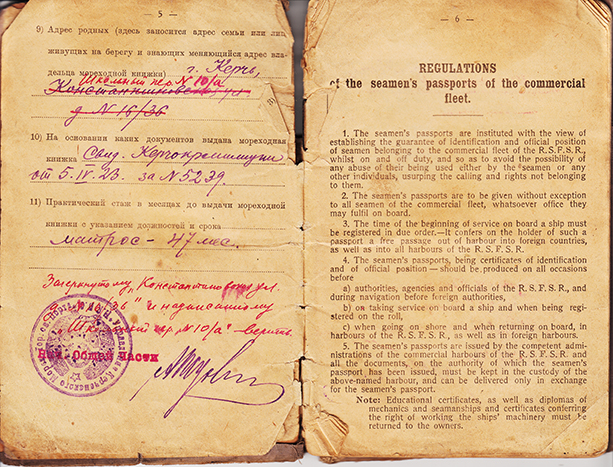 — 5 —
9) Адрес родных (здесь заносится адрес семьи или лиц,
живущих на берегу и знающих меняющийся адрес вла-
дельца мореходной книжки) г. Керчь,
Школьный пер N 10/а
Константиновская ул
д N 16/36
10) На основания каких документов выдана мореходная
книжка
от 5.IV.23. за N 5239.
11) Практический стаж в месяцах до выдачи мореходной
книжки с указанием должности и срока
матрос – 47 мес.
Зачеркнутому „Константиновская ул.
36" и надписанному
„Школьный пер. N 10/а" – верить.
Нач. Общей Части
— 6 —
REGULATIONS
of the seamen's passports of the commercial
fleet.
1. The seamen's passports are instituted with the view of
establishing the guarantee of identification and official position
of seamen belonging to the commercial fleet of the R.S.F.S.R.,
whilst on and off duty, and so as to avoid the possibility of
any abuse of their being used either by the seamen or any
other individuals, usurping the calling and rights not belonging
to them.
2. The seamen's passports are to be given without exception
to all seamen of the commercial fleet, whatsoever office they
may fulfil on board.
3. The time of the beginning of service on board a ship must
be registered in due order.—It confers on the holder of such
a passport a free passage out of harbour into foreign countries,
as well as into all harbours of the R. S. F. S. R.
4. The seamen's passports, being certificates of identification
and of official position — should be produced on all occasions
before
a) authorities, agencies and officials of the R. S. F. S. R., and
during navigation before foreign authorities,
b) on taking service on board a ship and when being regis-
tered on the roll,
c) when going on shore and when returning on board, in
harbours of the R. S. F. S. R., as well as in foreign harbours.
5. The seamen's passports are issued by the competent admi-
nistrations of the commercial harbours of the R. S. F. S. R. and
all the documents, on the authority of which the seamen's
passport has been issued, must be kept in the custody of the
above-named harbour, and can be delivered only in exchange
for the seamen's passport.
Note: Educational certificates, as well as diplomas of
mechanics and seamanships and certificates conferring
the right of working the ships' machinery must be
returned to the owners.